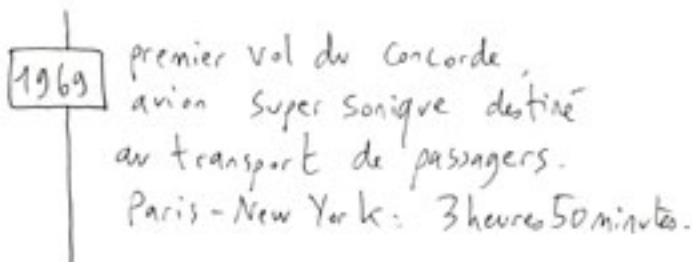 1969
premier vol du Concorde,
avion super sonique destiné
au transport de passagers.
Paris - New York : 3 heures 50 minutes.